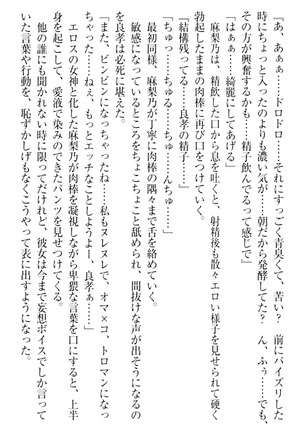 『あ、あぁぁ……ドロドロ……それにすっごく青臭くて、苦い？　前にパイズリした
時にちょっと入ったのよりも濃い気が……朝だから発酵してた？　ん、ふぅ……でも、
その方が興奮するかも……精子飲んでるって感じで』
「はぁぁ……綺麗にしてあげる」
麻梨乃は、精飲した口から息を吐くと、射精後も散々エロい様子を見せられて硬く
勃起したままの肉棒に再び口をつけていく。
『結構残ってる……良孝の精子……』
「ちゅっ……ちゅる……ちゅっ……んちゅ……」
最初同様、麻梨乃が丁寧に肉棒の隅々まで舌を絡めていく。
敏感になっているところをちょこちょこと舐められ、間抜けな声が出そうになるの
を良孝は必死に堪えた。
「また、ビンビンになっちゃったね……私もヌレヌレで、オマ×コ、トロマンになっ
ちゃった……ねぇ、もっとエッチなことしようよー、良孝ぁ……」
エロスの女神と化した麻梨乃が肉棒を凝視しながら卑猥な言葉を口にすると、上半
身を起こして、愛液で染みのできたパンツを見せつけてくる。
他の誰にも聞かれない時に限ってだけれど、彼女は今まで妄想ボイスでしか言って
いた言葉や行動を、恥ずかしげもなくこうやって表に出すようになった。